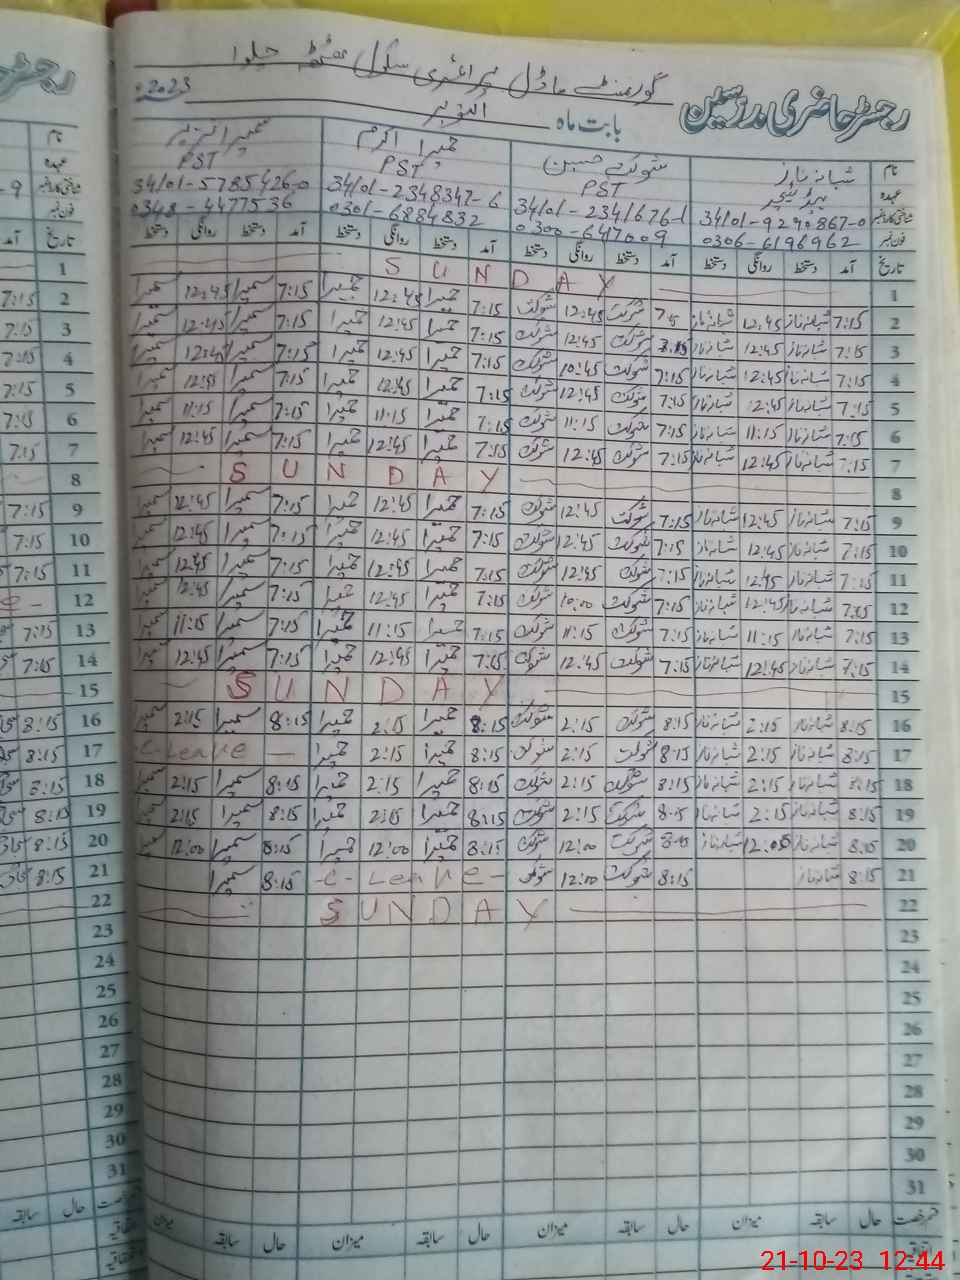 رجسٹر حاضری مدرسین
گورنمنٹ ماڈل پرائمری سکول
بابت ماہ اکتوبر 2023
نام شبانہ ناز شوکت حسین حمیرا اکرم سمیرا
عہدہ ہیڈ ٹیچر PST PST PST
شناختی کارڈ نمبر 34101-9290867-0 34101-2341676-1 34101-2348347-6 34101-5785426-0
فون نمبر 0306-6196962 0300-647009 0301-6884832 0348-4477536
تاریخ آمد دستخط روانگی دستخط آمد دستخط روانگی دستخط آمد دستخط روانگی دستخط آمد دستخط روانگی دستخط
1 SUNDAY 1
2 7:15 شبانہ ناز 12:45 شبانہ ناز شوکت 12:45 شوکت 7:15 حمیرا 12:45 حمیرا 7:15 سمیرا 12:45 سمیرا 2
3 7:15 شبانہ ناز 12:45 شبانہ ناز شوکت 12:45 شوکت 7:15 حمیرا 12:45 حمیرا 7:15 سمیرا 12:45 سمیرا 3
4 7:15 شبانہ ناز 12:45 شبانہ ناز 7:15 شوکت 10:45 شوکت 7:15 حمیرا 12:45 حمیرا 7:15 سمیرا 12:45 سمیرا 4
5 7:15 شبانہ ناز 12:45 شبانہ ناز 7:15 شوکت 12:45 شوکت 7:15 حمیرا 12:45 حمیرا 7:15 سمیرا 12:45 سمیرا 5
6 7:15 شبانہ ناز 11:15 شبانہ ناز 7:15 شوکت 11:15 شوکت 7:15 حمیرا 11:15 حمیرا 7:15 سمیرا 11:15 سمیرا 6
7 7:15 شبانہ ناز 12:45 شبانہ ناز 7:15 شوکت 12:45 شوکت 7:15 حمیرا 12:45 حمیرا 7:15 سمیرا 12:45 سمیرا 7
8 SUNDAY 8
9 7:15 شبانہ ناز 12:45 شبانہ ناز 7:15 شوکت 12:45 شوکت 7:15 حمیرا 12:45 حمیرا 7:15 سمیرا 12:45 سمیرا 9
10 7:15 شبانہ ناز 12:45 شبانہ ناز 7:15 شوکت 12:45 شوکت 7:15 حمیرا 12:45 حمیرا 7:15 سمیرا 12:45 سمیرا 10
11 7:15 شبانہ ناز 12:45 شبانہ ناز 7:15 شوکت 12:45 شوکت 7:15 حمیرا 12:45 حمیرا 7:15 سمیرا 12:45 سمیرا 11
12 7:15 شبانہ ناز 12:45 شبانہ ناز 7:15 شوکت 10:00 شوکت 7:15 حمیرا 12:45 حمیرا 7:15 سمیرا 12:45 سمیرا 12
13 7:15 شبانہ ناز 11:15 شبانہ ناز 7:15 شوکت 11:15 شوکت 7:15 حمیرا 11:15 حمیرا 7:15 سمیرا 11:15 سمیرا 13
14 7:15 شبانہ ناز 12:45 شبانہ ناز 7:15 شوکت 12:45 شوکت 7:15 حمیرا 12:45 حمیرا 7:15 سمیرا 12:45 سمیرا 14
15 SUNDAY 15
16 8:15 شبانہ ناز 2:15 شبانہ ناز 8:15 شوکت 2:15 شوکت 8:15 حمیرا 2:15 حمیرا 8:15 سمیرا 2:15 سمیرا 16
17 8:15 شبانہ ناز 2:15 شبانہ ناز 8:15 شوکت 2:15 شوکت 8:15 حمیرا 2:15 حمیرا C-Leave 17
18 8:15 شبانہ ناز 2:15 شبانہ ناز 8:15 شوکت 2:15 شوکت 8:15 حمیرا 2:15 حمیرا 8:15 سمیرا 2:15 سمیرا 18
19 8:15 شبانہ ناز 2:15 شبانہ ناز 8:15 شوکت 2:15 شوکت 8:15 حمیرا 2:15 حمیرا 8:15 سمیرا 2:15 سمیرا 19
20 8:15 شبانہ ناز شبانہ ناز 8:15 شوکت 12:00 شوکت 8:15 حمیرا 12:00 حمیرا 8:15 سمیرا 12:00 سمیرا 20
21 8:15 شبانہ ناز 8:15 شوکت 12:00 شوکت -C-Leave- 8:15 سمیرا 21
22 SUNDAY 22
23 23
24 24
25 25
26 26
27 27
28 28
29 29
30 30
31 31
حال سابقہ میزان حال سابقہ میزان حال سابقہ میزان حال سابقہ میزان
21-10-23 12:44